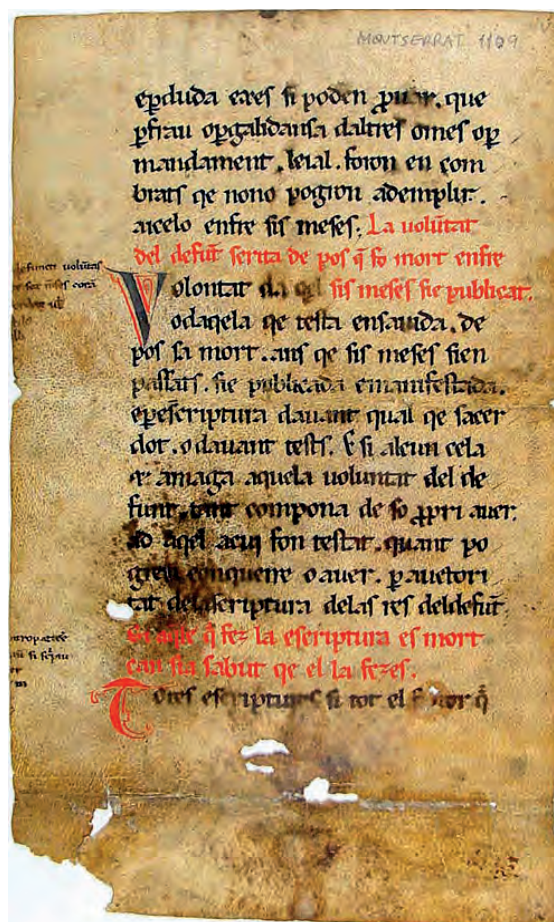 MONTSERRAT 1109
ep̱duda eres si poden p̱uar. que
p̱frau op̱galidansa daltres omes op̱
mandament. leial. foron en com
brats qe nono pogron ademplir.
aicelo enfre sis meses. La volūtat
del defūt scrita de pos q̄ fo mort enfre
sis meses sie publicat.
Volontat da qel
odaqela qe testa ensauida. de
pos sa mort. ans qe sis meses sien
passats. sie publicada emanifestada.
ep̱escriptura dauant qual qe sacer
dot. odauant tests. E si alcun cela
amaga aquela voluntat del de
funt. tant compona de so p̱pri auer.
ad aqel acui fon testat. quant po
conquerre o auer. p̱ auctori
tat delascriptura delas res deldefūt.
q̄ fez la escriptura es mort
can sia sabut qe el la fezes.
Totes escriptures si tot el q̄
defuncti volūtas